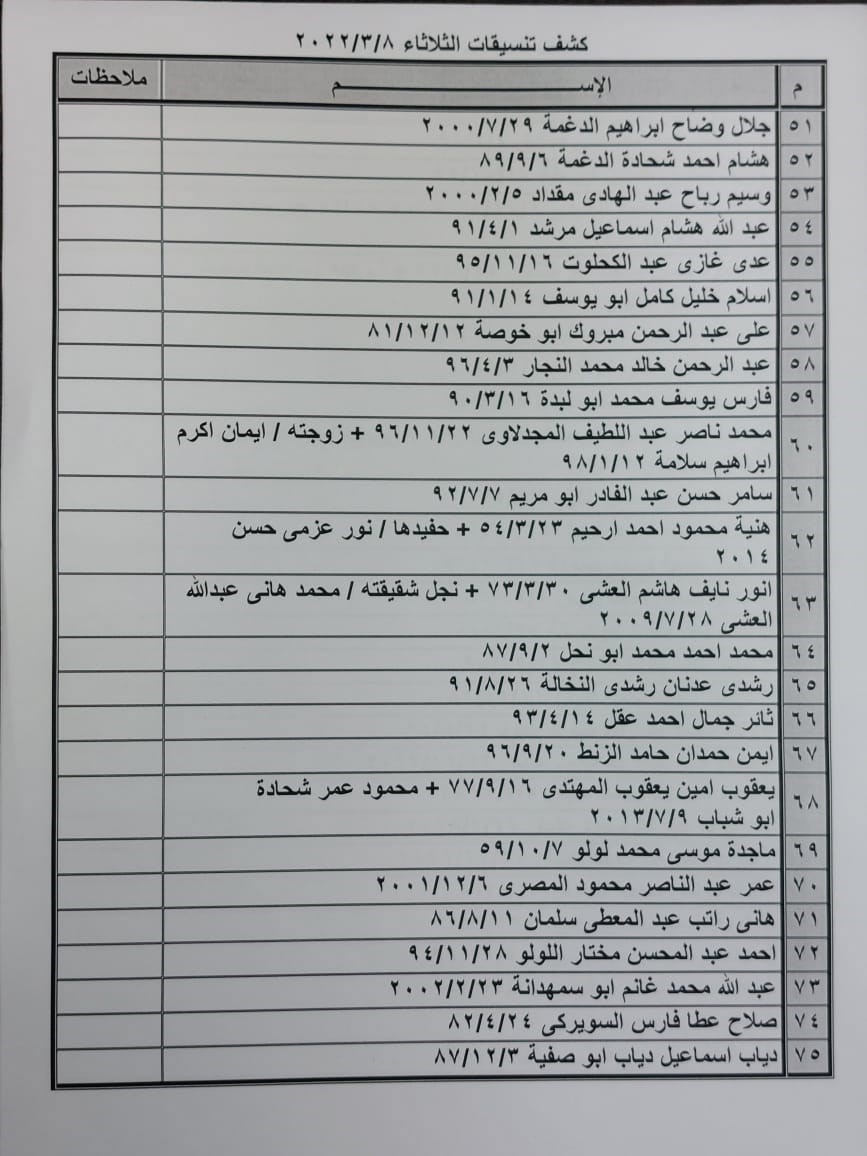 كشف تنسيقات الثلاثاء ٢٠٢٢/٣/٨
م الإســـــــــم ملاحظات
٥١ جلال وضاح ابراهيم الدغمة ٢٠٠٠/٧/٢٩
٥٢ هشام احمد شحادة الدغمة ٨٩/٩/٦
٥٣ وسيم رباح عبد الهادى مقداد ٢٠٠٠/٢/٥
٥٤ عبد الله هشام اسماعيل مرشد ٩١/٤/١
٥٥ عدى غازى عبد الكحلوت ٩٥/١١/١٦
٥٦ اسلام خليل كامل ابو يوسف ٩١/١/١٤
٥٧ على عبد الرحمن مبروك ابو خوصة ٨١/١٢/١٢
٥٨ عبد الرحمن خالد محمد النجار ٩٦/٤/٣
٥٩ فارس يوسف محمد ابو لبدة ٩٠/٣/١٦
٦٠ محمد ناصر عبد اللطيف المجدلاوى ٩٦/١١/٢٢ + زوجته / ايمان اكرم
ابراهيم سلامة ٩٨/١/١٢
٦١ سامر حسن عبد القادر ابو مريم ٩٢/٧/٧
٦٢ هنية محمود احمد ارحيم ٥٤/٣/٢٣ + حفيدها / نور عزمى حسن
٢٠١٤
٦٣ انور نايف هاشم العشى ٧٣/٣/٣٠ + نجل شقيقته / محمد هانى عبدالله
العشى ٢٠٠٩/٧/٢٨
٦٤ محمد احمد محمد ابو نحل ٨٧/٩/٢
٦٥ رشدى عدنان رشدى النخالة ٩١/٨/٢٦
٦٦ ثائر جمال احمد عقل ٩٣/٤/١٤
٦٧ ايمن حمدان حامد الزنط ٩٦/٩/٢٠
٦٨ يعقوب امين يعقوب المهتدى ٧٧/٩/١٦ + محمود عمر شحادة
ابو شباب ٢٠١٣/٧/٩
٦٩ ماجدة موسى محمد لولو ٥٩/١٠/٧
٧٠ عمر عبد الناصر محمود المصرى ٢٠٠١/١٢/٦
٧١ هانى راتب عبد المعطى سلمان ٨٦/٨/١١
٧٢ احمد عبد المحسن مختار اللولو ٩٤/١١/٢٨
٧٣ عبد الله محمد غانم ابو سمهدانة ٢٠٠٢/٢/٢٣
٧٤ صلاح عطا فارس السويركى ٨٢/٤/٢٤
٧٥ دياب اسماعيل دياب ابو صفية ٨٧/١٢/٣